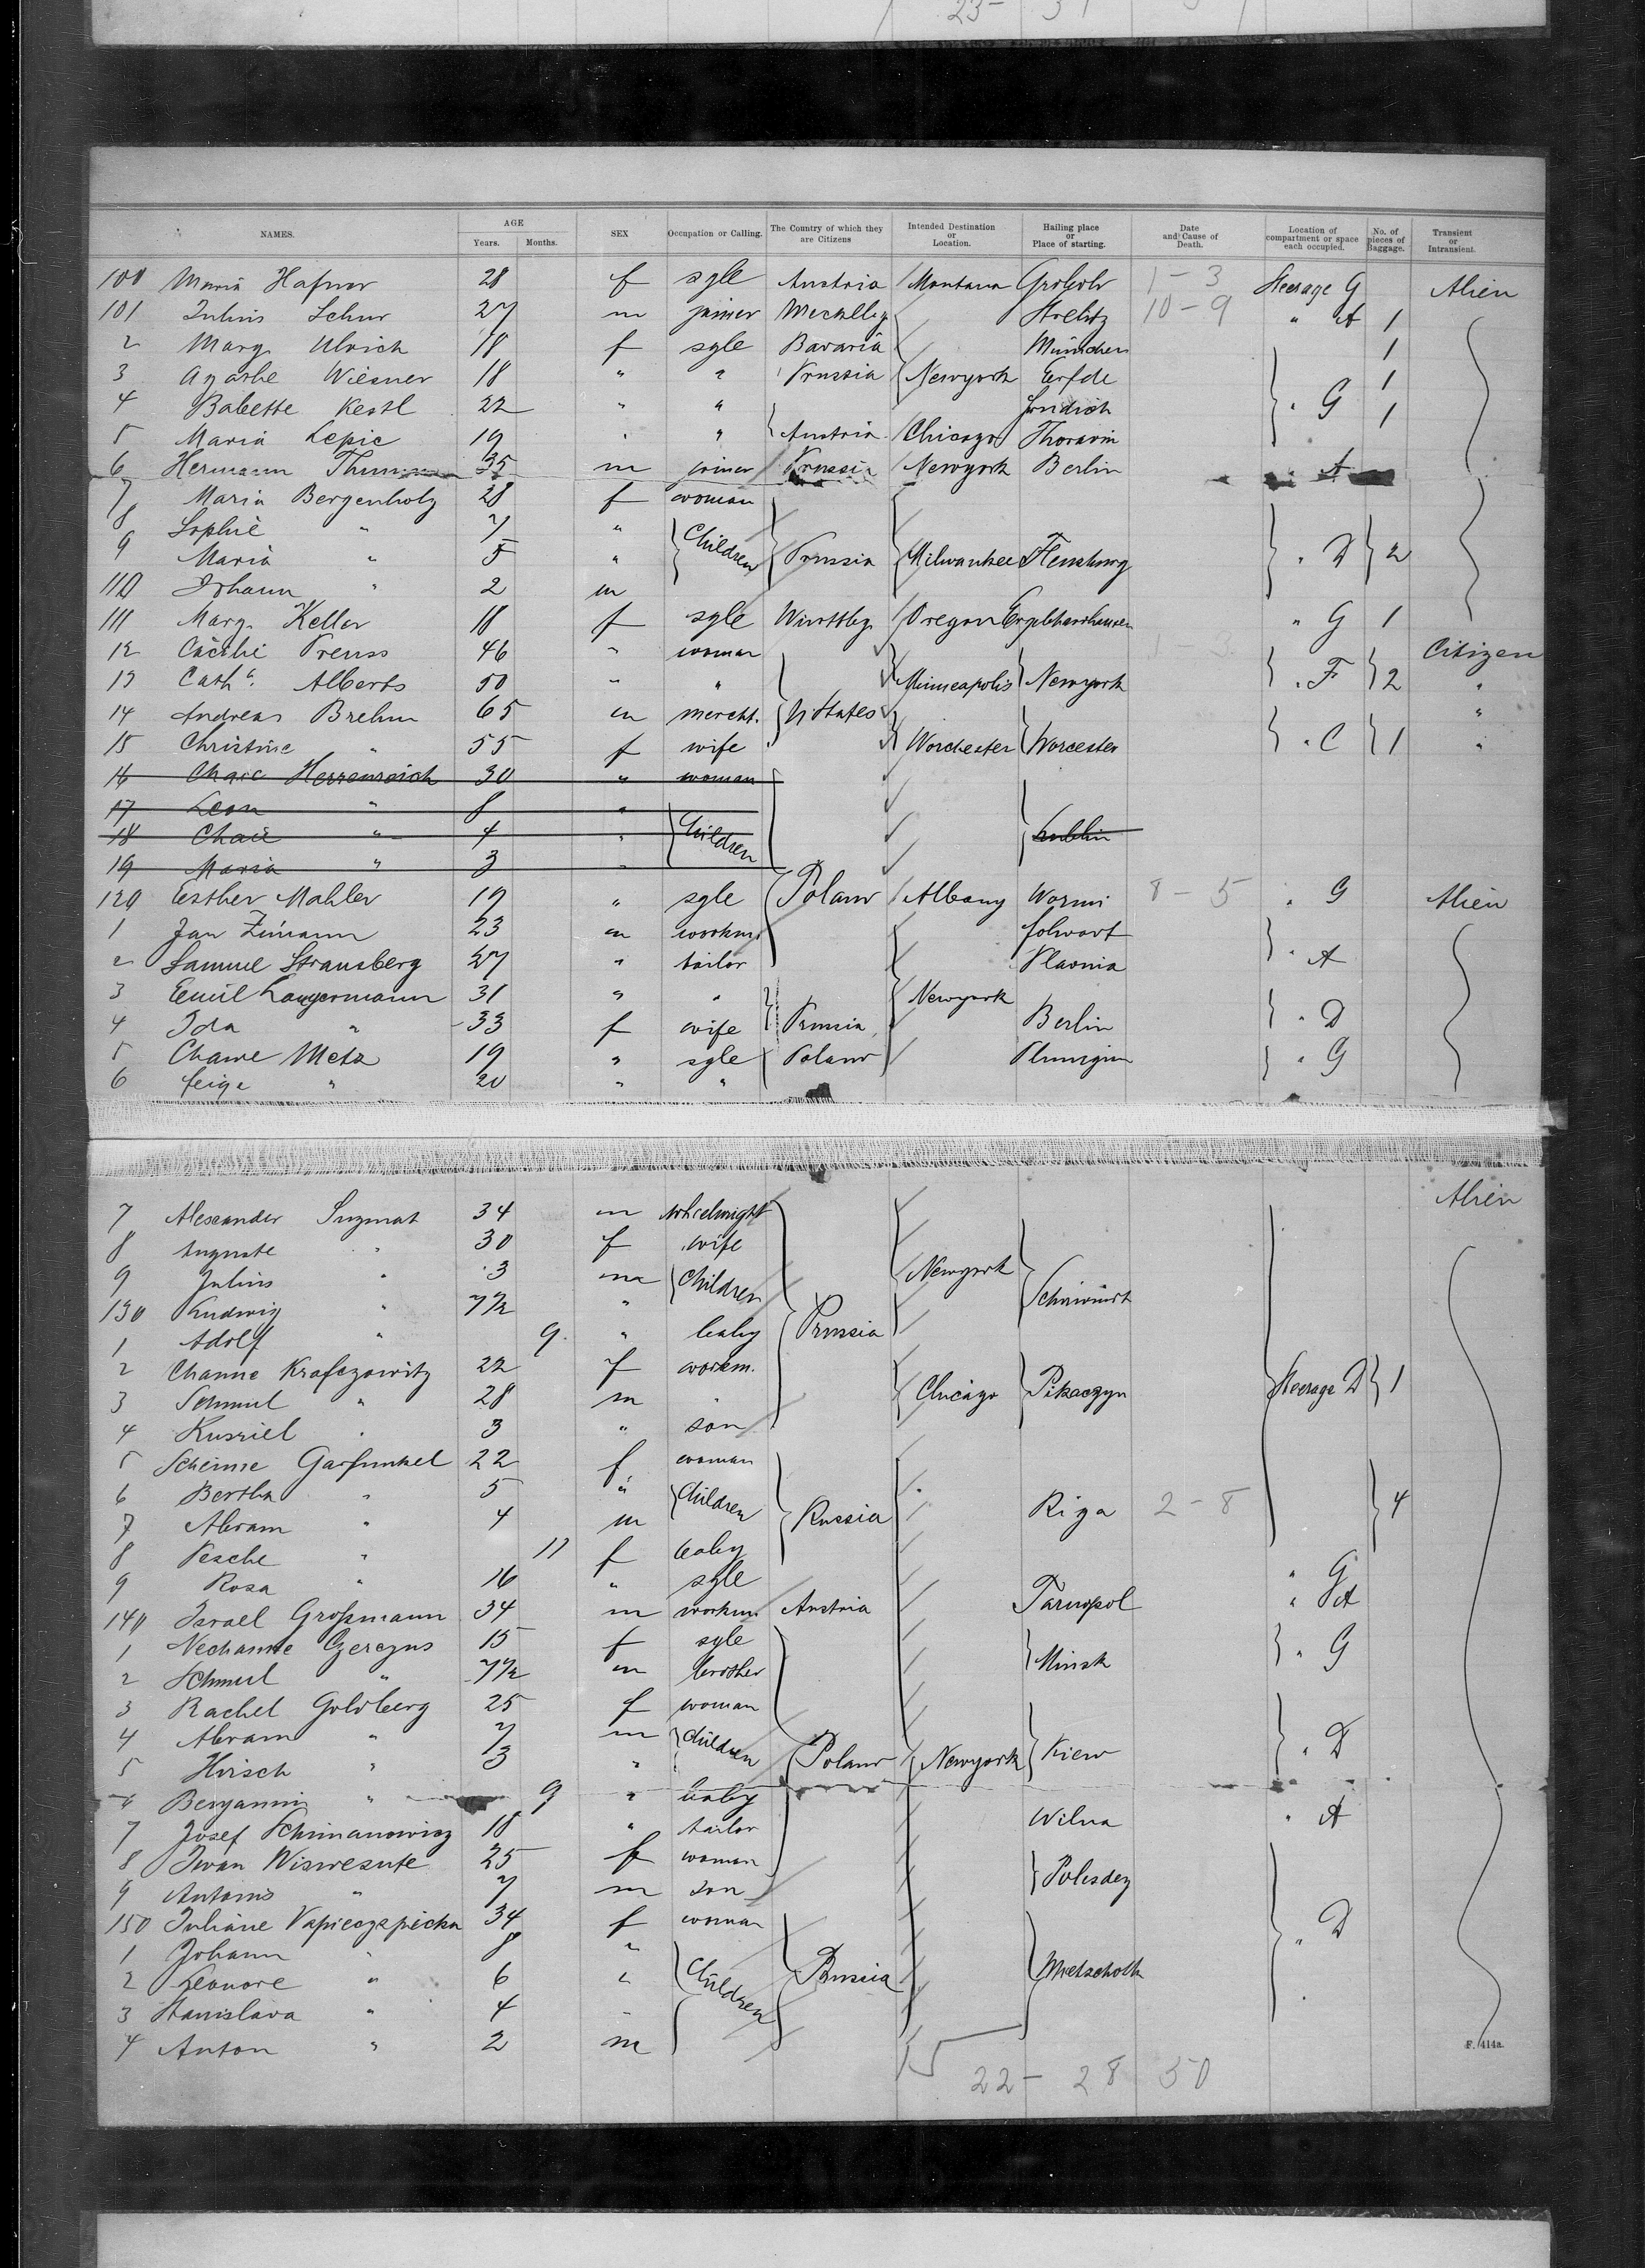 23- 31
NAMES. AGE Years. Months. SEX Occupation or Calling. The Country of which they are Citizens Intended Destination or Location. Hailing place or Place of starting. Date and Cause of Death. Location of compartment or space each occupied. No. of pieces of Baggage. Transient or Intransient.
100 Maria Hafner 28 f sgle Austria Montana 1-3 Steerage G Alien
101 Julius Schur 27 m joiner Mecklbg Strelitz 10-9 " A 1
2 Marg. Ulrich 18 f sgle Bavaria München 1
3 Agathe Wiesner 18 " " Prussia Newyork Erfde 1
4 Babette Kestl 22 " " " G 1
5 Maria Lepic 19 " " Austria Chicago
6 Hermann 35 m joiner Prussia Newyork Berlin A
7 Maria Bergenholz 28 f woman
8 Sophie " 7 " Children
9 Maria " 5 " Prussia Milwaukee Flensburg " D 2
110 Johann " 2 m
111 Marg. Keller 18 f sgle Württbg. Oregon " G 1
12 Cäcilie Preuss 46 " woman 1-3 Citizen
13 Cath. Alberts 50 " " Minneapolis Newyork " F 2 "
14 Andreas Brehm 65 m mercht. U States "
15 Christine " 55 f wife Worchester Worcester " C 1 "
16 Herrenreich 30 " woman
17 Leon " 8 "
18 Chaie " 4 " Children Lublin
19 Maria " 3 "
120 Esther Mahler 19 " sgle Poland Albany Worme 8-5 " G Alien
1 Jan Zimann 23 m workm. folwart
2 Samuel Strausberg 27 " tailor " A
3 Emil Langermann 31 " " Newyork
4 Ida " 33 f wife Prussia Berlin " D
5 Chawe Metz 19 " sgle Poland " G
6 feige " 20 " "
Alien
7 Alexander 34 m Wheelwright
8 Auguste " 30 f wife
9 Julius " 3 m Children Newyork
130 Ludwig " 7½ "
1 Adolf " 9. " baby Prussia
2 Channe Krafczowitz 22 f workm.
3 Schmul " 28 m " Chicago Pikaczyn Steerage D 1
4 Kusriel " 3 " son
5 Scheine Garfunkel 22 f woman
6 Bertha " 5 " Children
7 Abram " 4 m Russia Riga 2-8 4
8 Pesche " 11 f baby
9 Rosa " 16 " sgle " G
140 Israel Großmann 34 m workm. Austria Tarnopol " A
1 Nechame 15 f sgle
2 Schmul " 7½ m brother Minsk " G
3 Rachel Goldberg 25 f woman
4 Abram " 7 m Children
5 Hirsch " 3 " Poland Newyork Kiew " D
6 Benjamin " 9 " baby
7 Josef Schimanowicz 18 " tailor Wilna " A
8 Iwan 25 f woman
9 Antonis " 7 m son
150 Juliane 34 f woman " D
1 Johann " 8 "
2 Leonore " 6 " Children Prussia
3 Stanislava " 4 "
4 Anton " 2 m
F. 414a.
22- 28 50